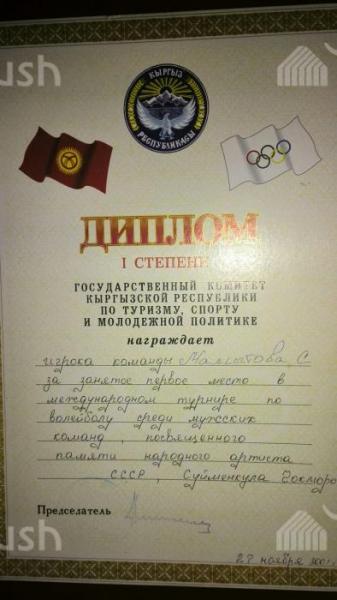 ush
КЫРГЫЗ
РЕСПУБЛИКАСЫ
ДИПЛОМ
I СТЕПЕНИ
ГОСУДАРСТВЕННЫЙ КОМИТЕТ
КЫРГЫЗСКОЙ РЕСПУБЛИКИ
ПО ТУРИЗМУ, СПОРТУ
И МОЛОДЕЖНОЙ ПОЛИТИКЕ
награждает
игрока команды С.
за занятое первое место в
международном турнире по
волейболу среди мужских
команд, посвященного
памяти народного артиста
СССР, Суйменкула
Председатель
ush
27 ноября